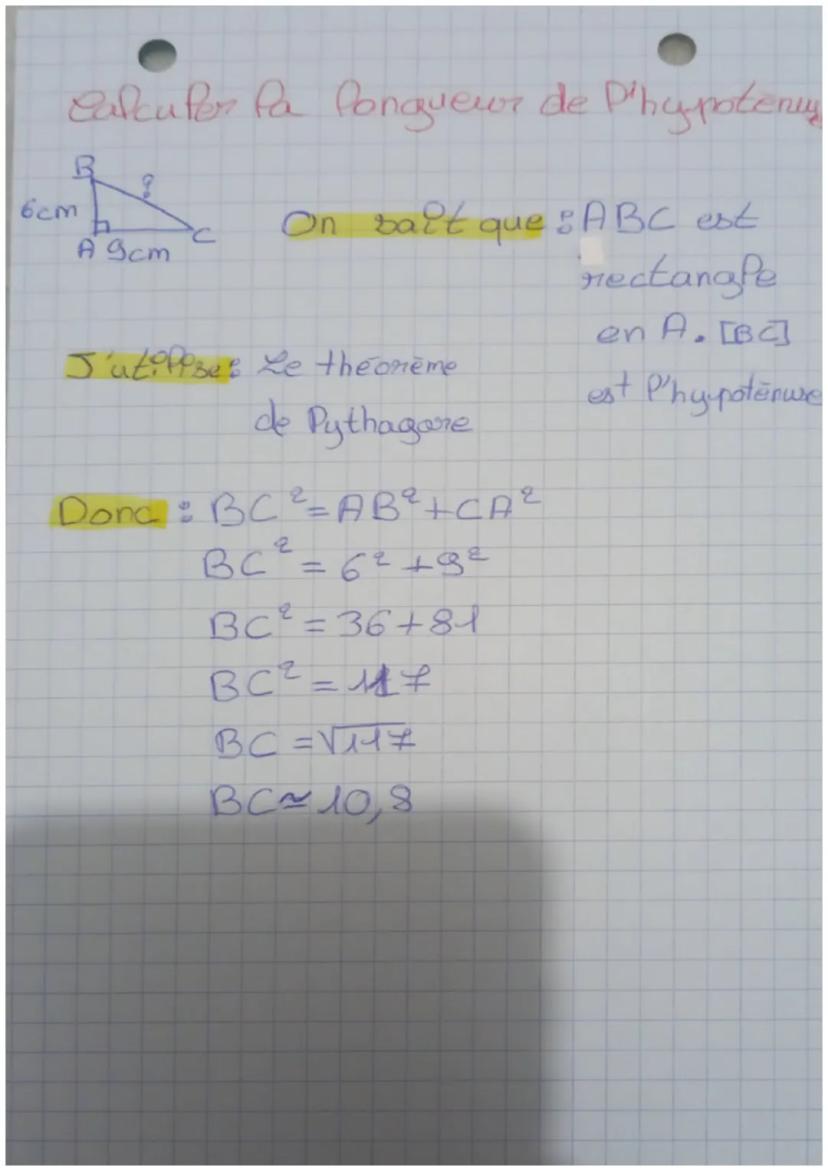 Calculer la longueur de l'hypoténus
B
?
6cm
A 9cm
C
On sait que : ABC est
rectangle
en A. [BC]
est l'hypoténuse
J'utilise : Le théorème
de Pythagore
Donc : BC² = AB² + CA²
BC² = 6² + 9²
BC² = 36 + 81
BC² = 117
BC = √117
BC ≃ 10,8